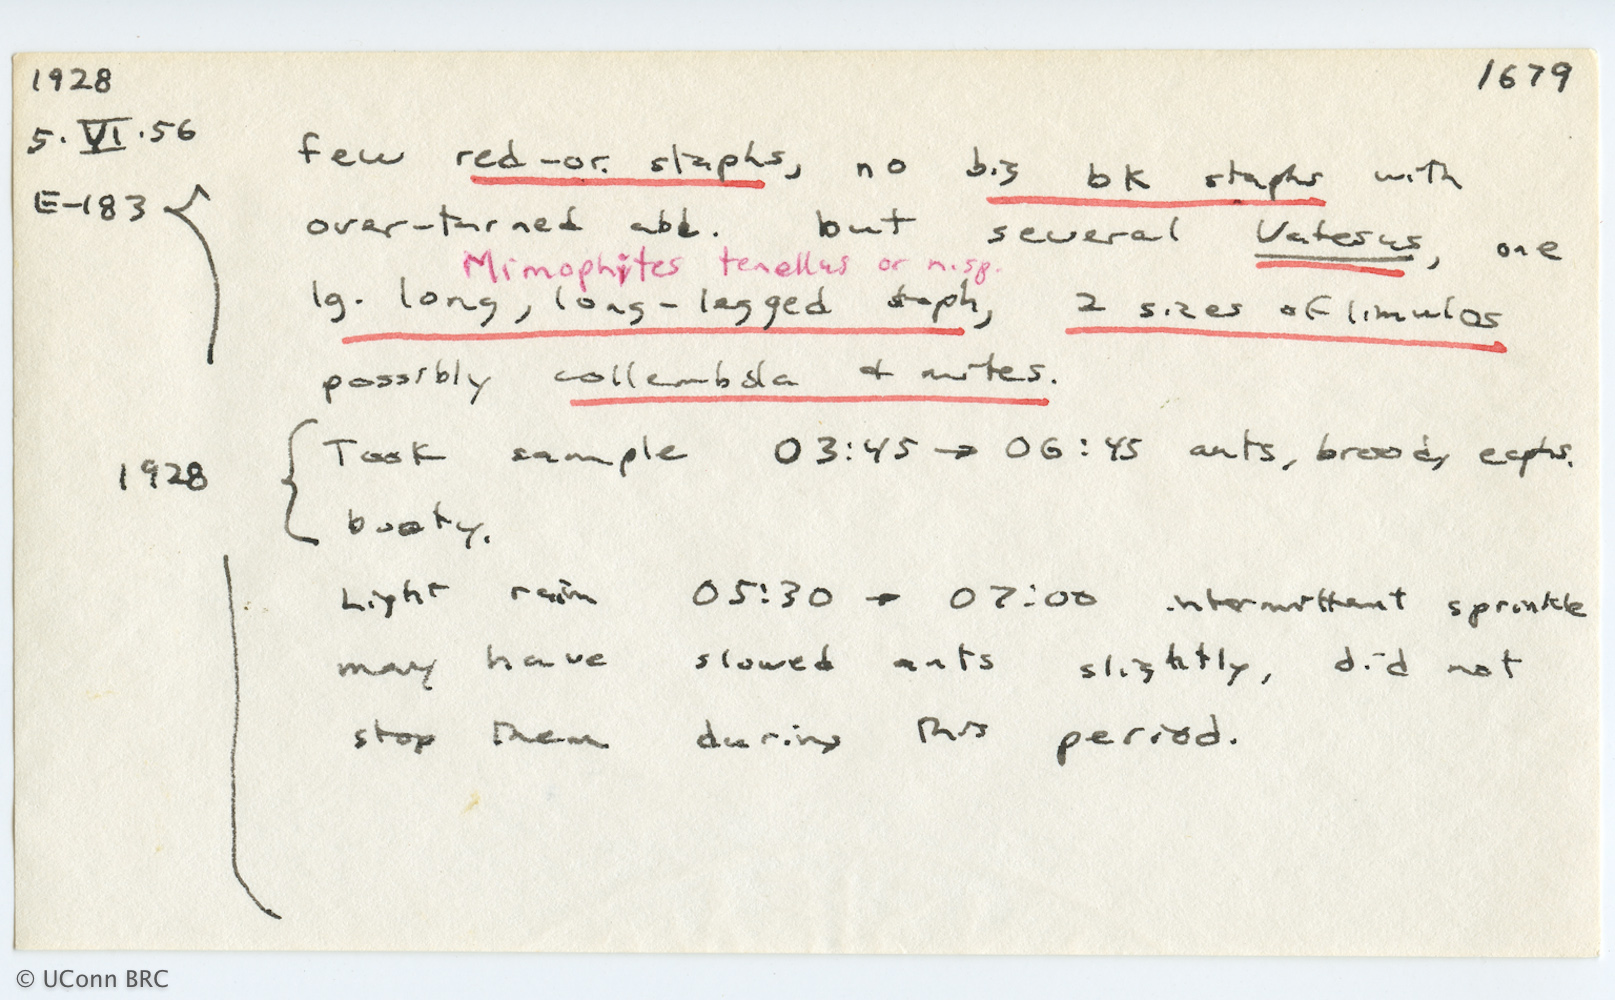 1928
1679
5.VI.56
E-183
few red-or. staphs, no big bk staphs with
over-turned abd. but several Vatesus, one
Mimophites tenellus or n.sp.
lg. long, long-legged staph, 2 sizes of limulos
possibly collembola & mites.
1928
Took sample 03:45 → 06:45 ants, brood, ecphs.
booty.
Light rain 05:30 → 07:00 intermittent sprinkle
may have slowed ants slightly, did not
stop them during this period.
© UConn BRC